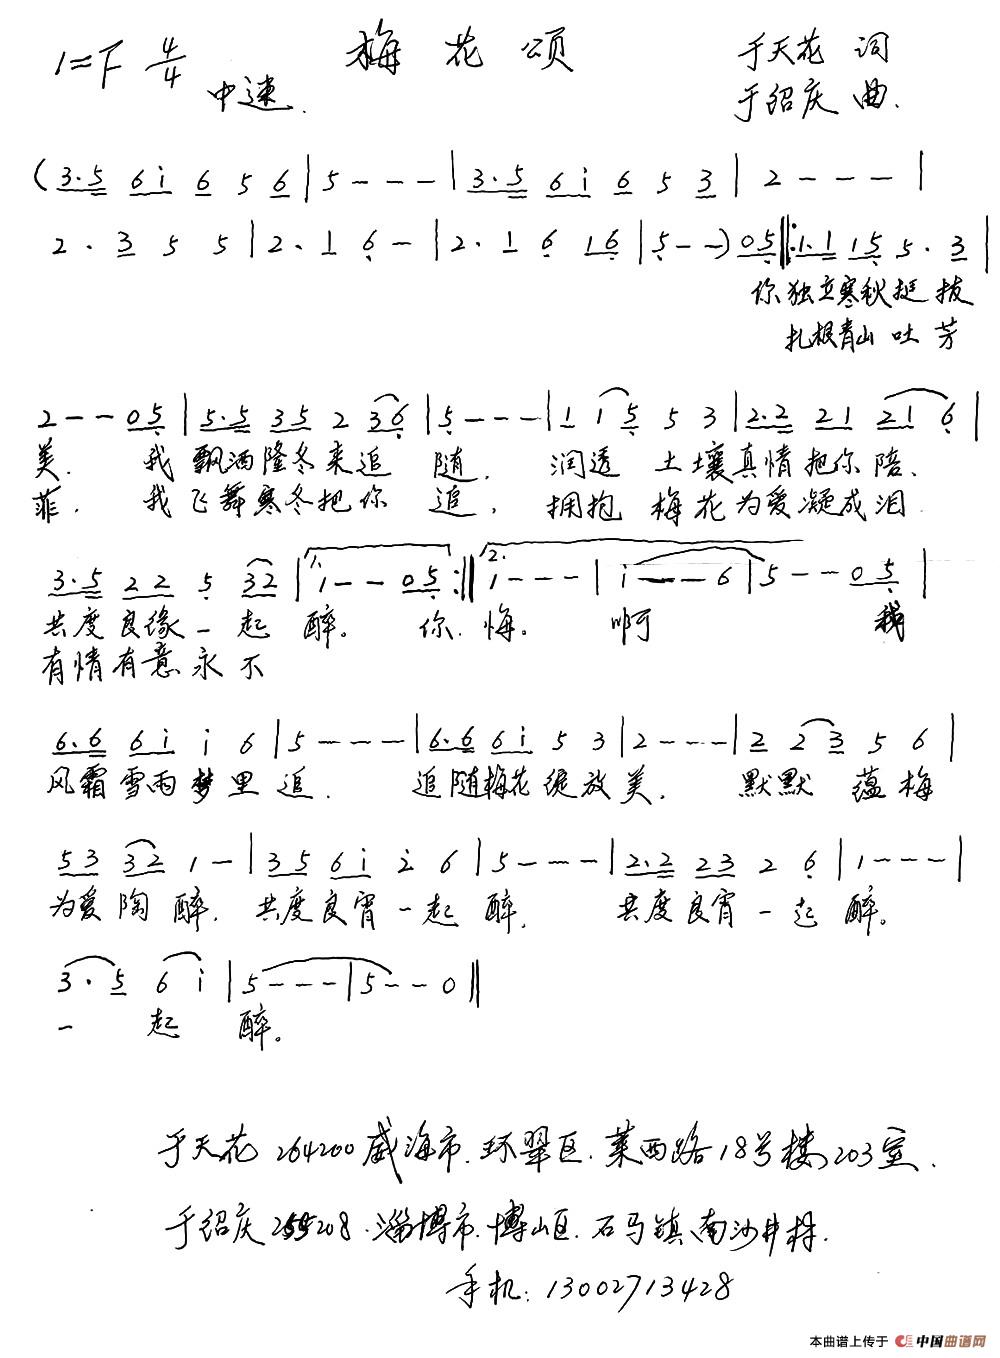 梅花颂
1=F 4/4
中速.
于天花 词
于绍庆 曲.
(3·5 6i 6 5 6 | 5 - - - | 3·5 6i 6 5 3 | 2 - - - |
2· 3 5 5 | 2· 1 6 - | 2· 1 6 16 | 5 - -) 05 ‖: 1·1 15 5· 3 |
你独立寒秋挺拔
扎根青山吐芳
2 - - 05 | 5·5 35 2 36 | 5 - - - | 1 15 5 3 | 2·2 21 21 6 |
美. 我飘洒隆冬来追随. 润透土壤真情把你陪.
菲. 我飞舞寒冬把你追, 拥抱梅花为爱凝成泪.
3·5 22 5 32 | 1. 1 - - 05 :‖ 2. 1 - - - | i - - 6 | 5 - - 05 |
共度良缘一起醉。 你. 悔。 啊 我
有情有意永不
6·6 6i i 6 | 5 - - - | 6·6 6i 5 3 | 2 - - - | 2 23 5 6 |
风霜雪雨梦里追. 追随梅花绽放美. 默默蕴梅
53 32 1 - | 35 6i 2 6 | 5 - - - | 2·2 23 2 6 | 1 - - - |
为爱陶醉. 共度良宵一起醉. 共度良宵一起醉。
3· 5 6 i | 5 - - - | 5 - - 0 ‖
一起醉。
于天花 264200 威海市.环翠区.莱西路18号楼203室.
于绍庆 255208.淄博市.博山区.石马镇.南沙井村.
手机: 13002713428
本曲谱上传于 中国曲谱网